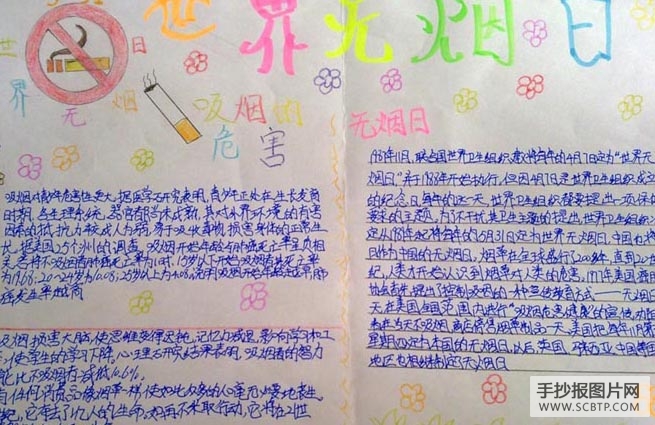 5·31
世界无烟日
世
日
界
无
烟
吸烟的
危害
无烟日
吸烟对青少年危害性更大。据医学研究表明,青少年正处在生长发育
时期,各生理系统、器官都尚未成熟,其对外界环境的有害
因素的抵抗力较成人为弱,易于吸收毒物,损害身体的正常生
长。据美国25个州的调查,吸烟开始年龄与肺癌死亡率呈负相
关。若将不吸烟者肺癌死亡率定为1时,15岁以下开始吸烟者其死亡率
为19.68;20-24岁为10.08;25岁以上为4.08。说明吸烟开始年龄越早,肺
癌发生率越高
吸烟损害大脑,使思维变得迟钝,记忆力减退,影响学习和工
作,使学生的学习下降。心理研究结果表明,吸烟者的智力
能比不吸烟者减低10.6%。
有任何消费品像烟草一样,使如此众多的人心甘无悔地丧生。
纪,它夺去了亿人的生命。如再不采取行动,它将在21世
1987年11月,联合国世界卫生组织建议将每年的4月7日定为“世界无
烟日”,并于1988年开始执行。但因4月7日是世界卫生组织成立
的纪念日,每年的这一天,世界卫生组织都要提出一项保健
要求的主题。为了不干扰其卫生主题的提出,世界卫生组织决
定从1989年起将每年的5月31日定为世界无烟日,中国也将
日作为中国的无烟日。烟草在全球盛行了200多年,直到20世
纪,人类才开始认识到烟草对人类的危害。1977年,美国癌症
协会首先提出了控制吸烟的一种宣传教育方式——无烟日
天在美国全国范围内进行“吸烟危害健康”的宣传,劝阻
者在当天不吸烟,商店停售烟草制品一天。美国把每年11月第三
星期四定为本国的无烟日。以后,英国、马来西亚、中国香港
地区也相继制定了无烟日
手抄报图片网
WWW.SCBTP.COM